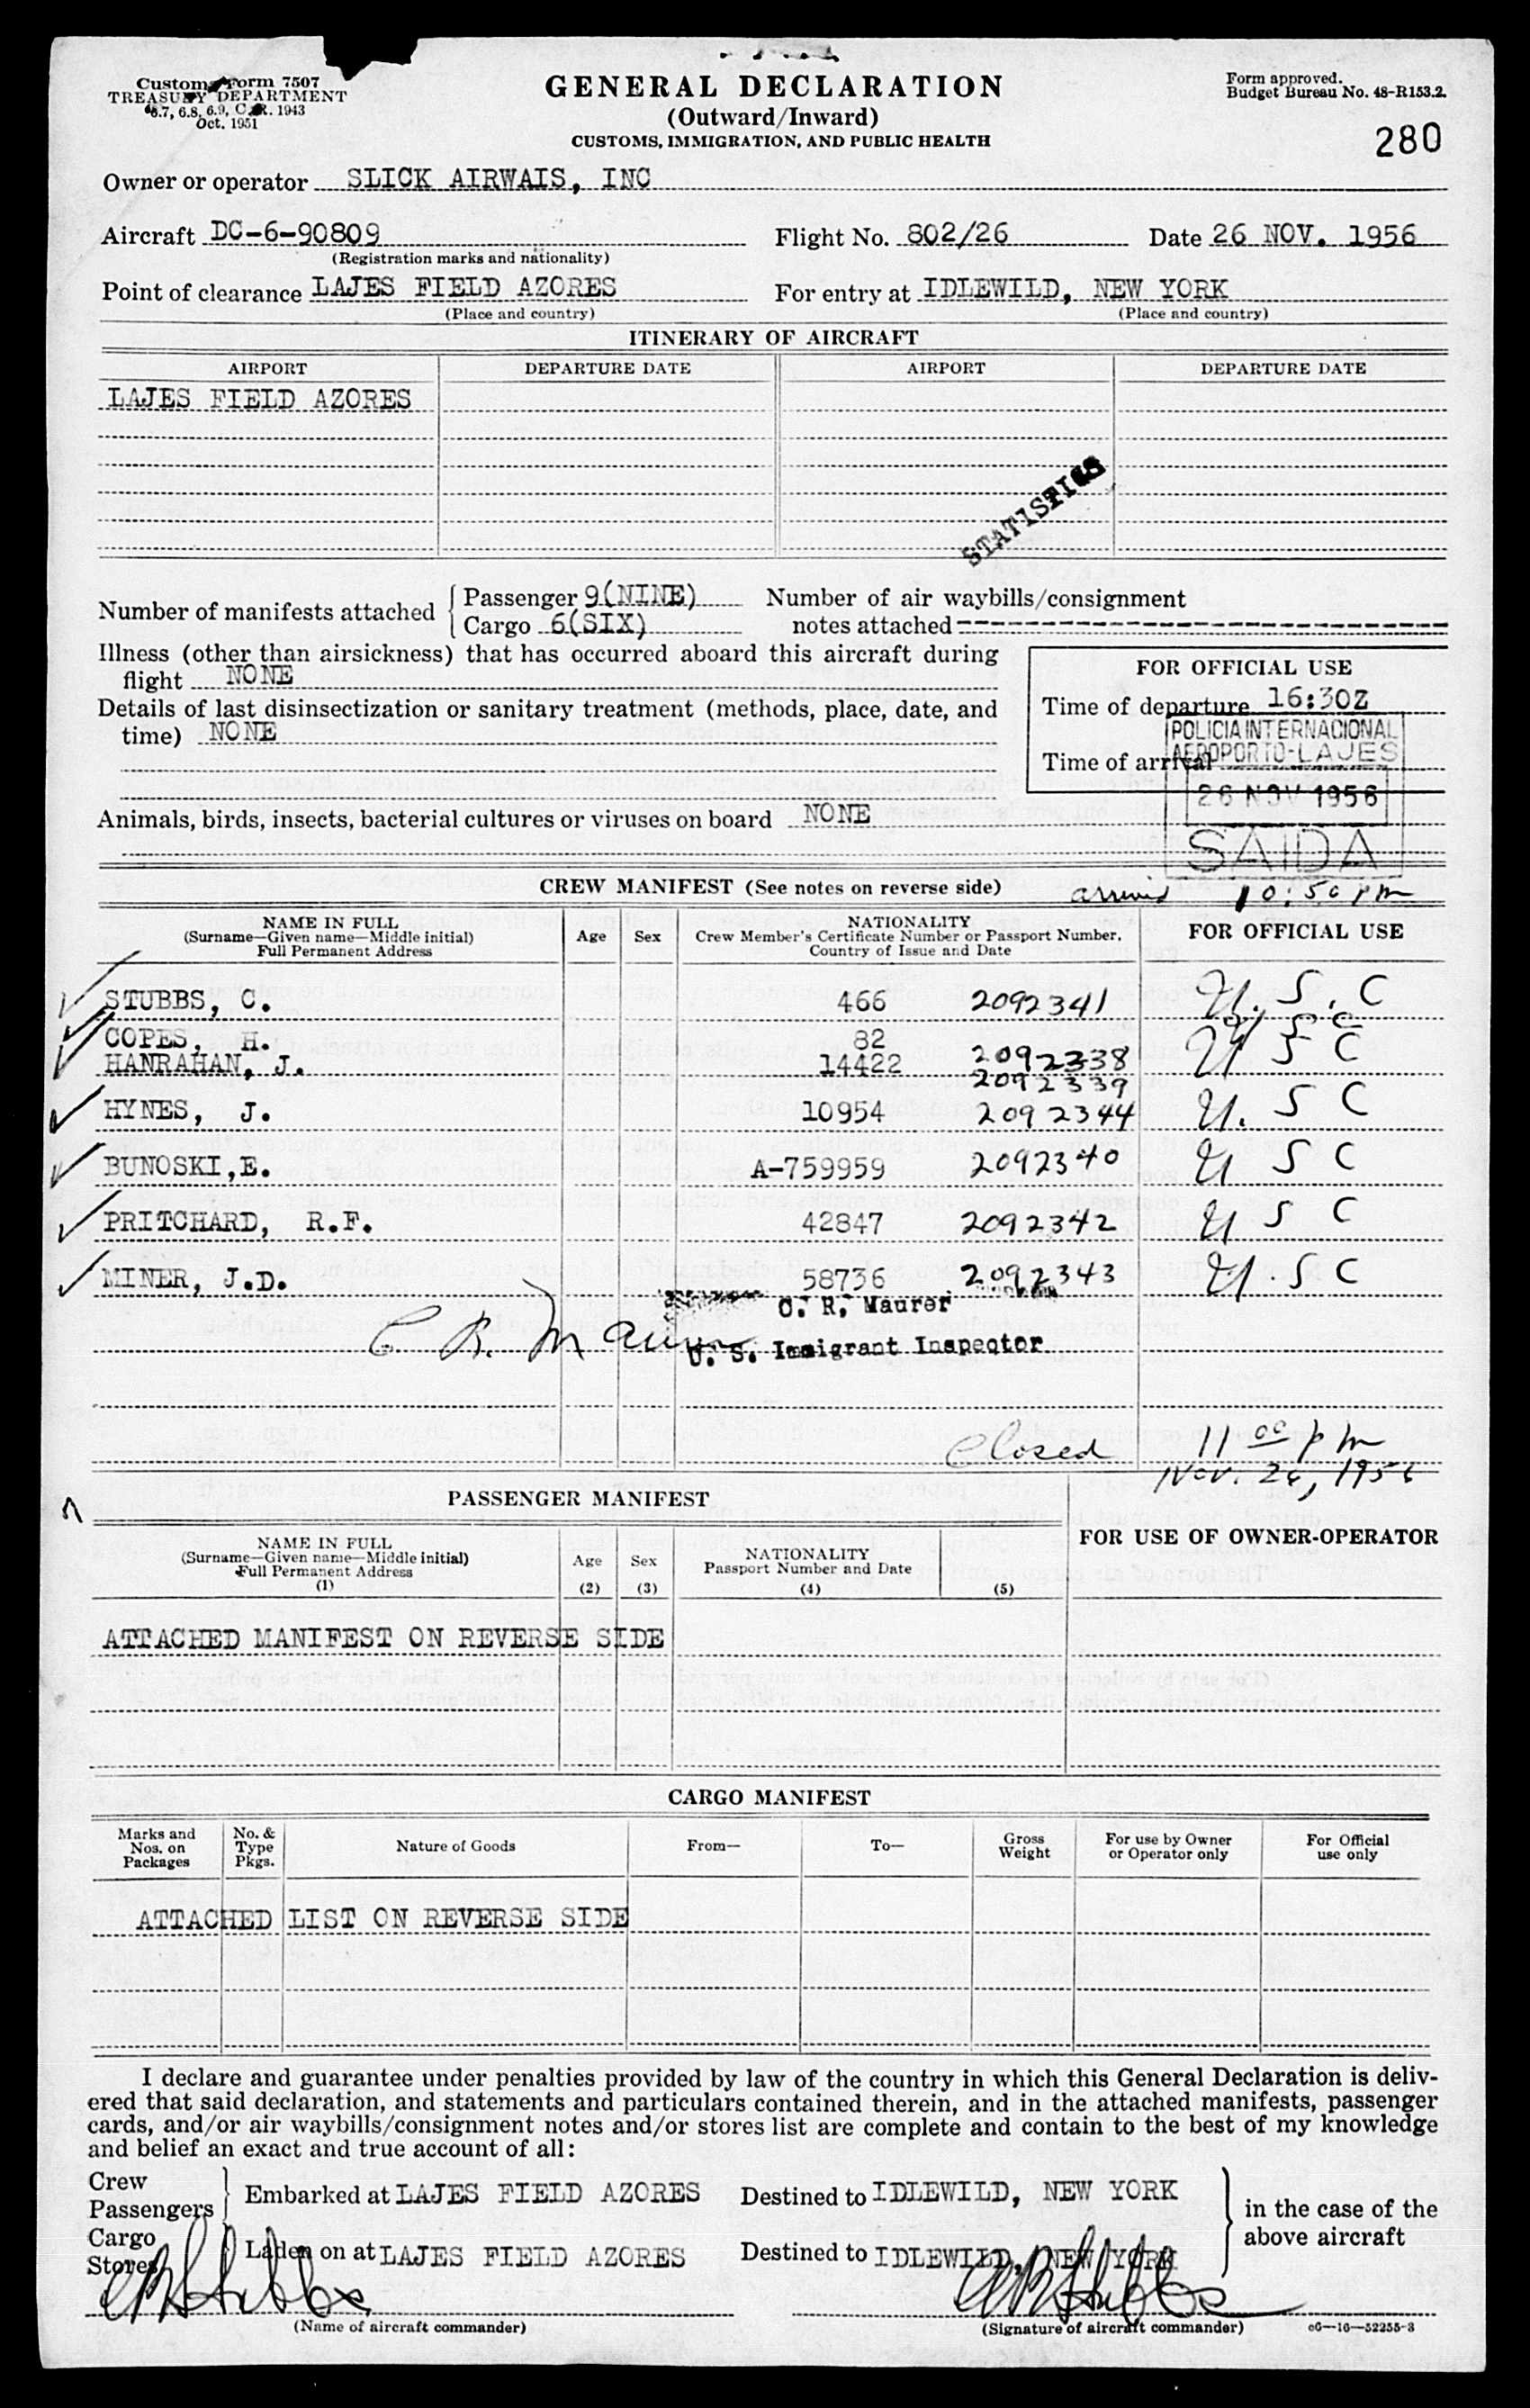 Customs Form 7507
TREASURY DEPARTMENT
6.7, 6.8, 6.9, C.A.R. 1943
Oct. 1951
GENERAL DECLARATION
(Outward/Inward)
CUSTOMS, IMMIGRATION, AND PUBLIC HEALTH
Form approved.
Budget Bureau No. 48-R153.2.
280
Owner or operator SLICK AIRWAIS, INC
Aircraft DC-6-90809 Flight No. 802/26 Date 26 NOV. 1956
(Registration marks and nationality)
Point of clearance LAJES FIELD AZORES For entry at IDLEWILD, NEW YORK
(Place and country) (Place and country)
ITINERARY OF AIRCRAFT
AIRPORT DEPARTURE DATE AIRPORT DEPARTURE DATE
LAJES FIELD AZORES
STATISTICS
Number of manifests attached
Passenger 9(NINE)
Cargo 6(SIX)
Number of air waybills/consignment
notes attached
Illness (other than airsickness) that has occurred aboard this aircraft during
flight NONE
Details of last disinsectization or sanitary treatment (methods, place, date, and
time) NONE
FOR OFFICIAL USE
Time of departure 16:30Z
Time of arrival
POLICIA INTERNACIONAL
AEROPORTO-LAJES
26 NOV 1956
SAIDA
Animals, birds, insects, bacterial cultures or viruses on board NONE
CREW MANIFEST (See notes on reverse side)
arrived 10:50 pm
NAME IN FULL
(Surname—Given name—Middle initial)
Full Permanent Address
Age Sex
NATIONALITY
Crew Member's Certificate Number or Passport Number,
Country of Issue and Date
FOR OFFICIAL USE
STUBBS, C. 466 2092341 U. S. C
COPES, H. 82 2092338 U S C
HANRAHAN, J. 14422 2092339 U S C
HYNES, J. 10954 2092344 U. S C
BUNOSKI,E. A-759959 2092340 U S C
PRITCHARD, R.F. 42847 2092342 U S C
MINER, J.D. 58736 2092343 U. S C
C. R. Maurer
C R. Maurer
U. S. Immigrant Inspector
Closed 11 00 pm
Nov. 26, 1956
PASSENGER MANIFEST
FOR USE OF OWNER-OPERATOR
NAME IN FULL
(Surname—Given name—Middle initial)
Full Permanent Address
(1)
Age
(2)
Sex
(3)
NATIONALITY
Passport Number and Date
(4)
(5)
ATTACHED MANIFEST ON REVERSE SIDE
CARGO MANIFEST
Marks and
Nos. on
Packages
No. &
Type
Pkgs.
Nature of Goods
From—
To—
Gross
Weight
For use by Owner
or Operator only
For Official
use only
ATTACHED LIST ON REVERSE SIDE
I declare and guarantee under penalties provided by law of the country in which this General Declaration is deliv-
ered that said declaration, and statements and particulars contained therein, and in the attached manifests, passenger
cards, and/or air waybills/consignment notes and/or stores list are complete and contain to the best of my knowledge
and belief an exact and true account of all:
Crew
Passengers
Embarked at LAJES FIELD AZORES Destined to IDLEWILD, NEW YORK
Cargo
Stores
Laden on at LAJES FIELD AZORES Destined to IDLEWILD, NEW YORK
in the case of the
above aircraft
CB Stubbs CB Stubbs
(Name of aircraft commander) (Signature of aircraft commander) c6—16—52255-3